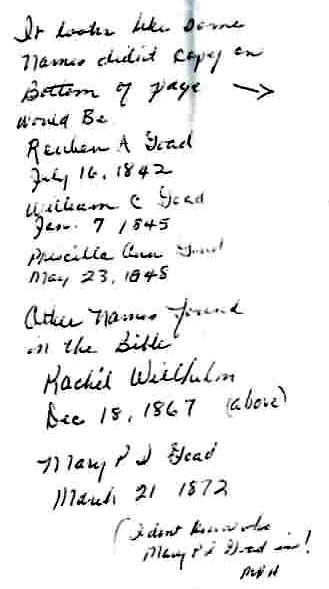 It looks like some
Names didn't copy on
Bottom of page →
would Be
Reuben A Goad
July 16, 1842
William C Goad
Jan. 7 1845
Priscilla Ann Goad
May 23, 1848
Other Names found
in the Bible
Rachel Wilhelm
Dec 18, 1867 (above)
Mary P S Goad
March 21 1872
(I dont know who
Mary P S Goad is!